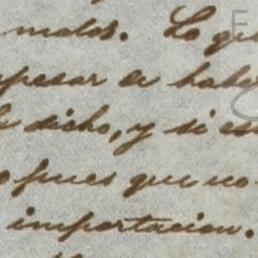 malos. Lo que
pesar de habe
dicho, y si es
pues que no
importacion.